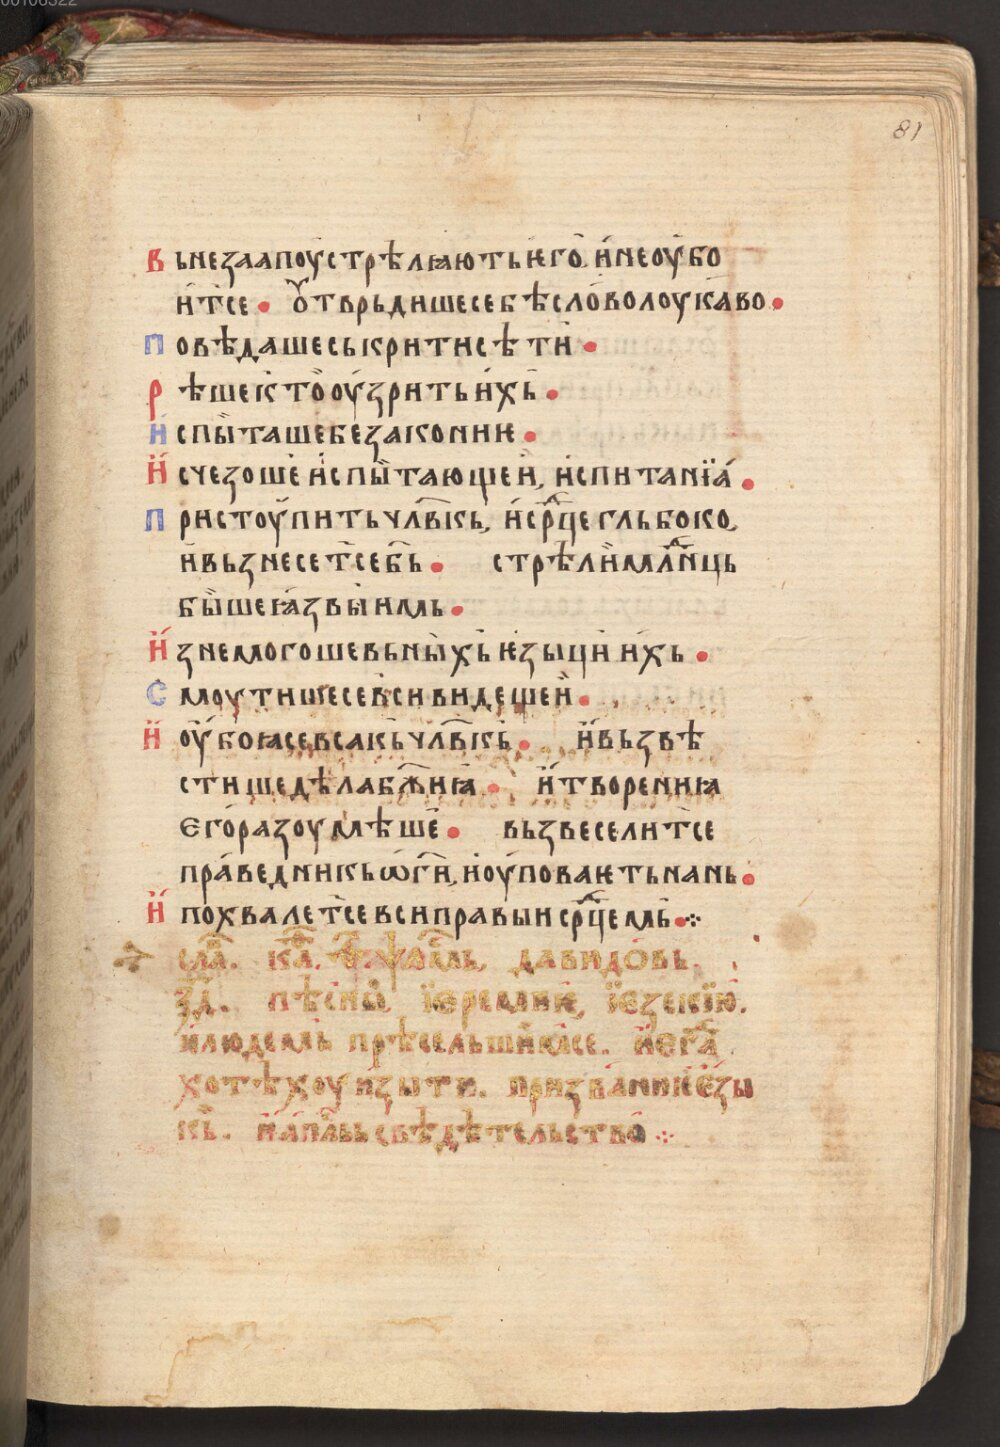 00108522
81
Вьнезаапоу стрѣлꙗють ѥго, и не оубо
итсе • Ѹтврьдише себѣ слово лоукаво •
Повѣдаше ськрити сѣти •
Рѣше кто оузрить ихь •
Испыташе безаконниѥ •
Исчезоше испытающеи, испитанїа •
Пристоупить чл҃вкь, и ср҃це гльбоко,
и вьзнесетсе б҃ь • стрѣли мл҃днць
быше ꙗзвы имь •
Изнемогоше вь ныхь ѥзыци ихь •
Смоутишесе вси видещеи •
И оубоꙗсе всакь чл҃вкь • и вьзвѣ
стише дѣла бж҃иꙗ • и твореникꙗ
Єго разоумѣше • вьзвеселитсе
праведникь ѡ г҃и, и оуповаѥть на нь •
И похвалетсе вси правыи ср҃цемь •
сла҃. ка҃. ѱ҃омь, давидовь.
ѯд҃. пѣснь, їѥремиѥ, їезекїю,
и людемь прѣсельшіимсе. ѥгда
хотѣхоу изыти. призваниѥ ѥзы
кь. свѣдѣтельство